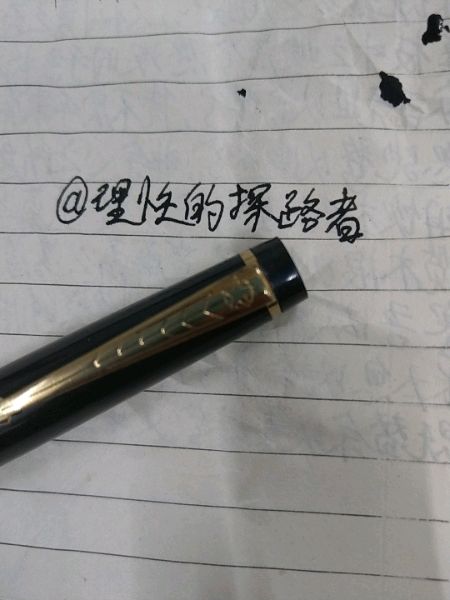 @理性的探路者